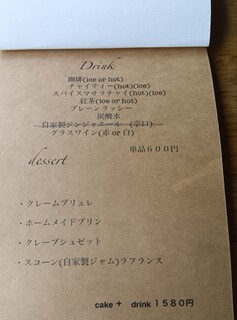 Drink
珈琲(ice or hot)
チャイティー(hot)(ice)
スパイスマサラチャイ(hot)(ice)
紅茶(ice or hot)
プレーンラッシー
炭酸水
自家製ジンジャエール (辛口)
グラスワイン(赤 or 白)
単品600円
dessert
・クレームブリュレ
・ホームメイドプリン
・クレープシュゼット
・スコーン(自家製ジャム)ラフランス
cake + drink 1580円